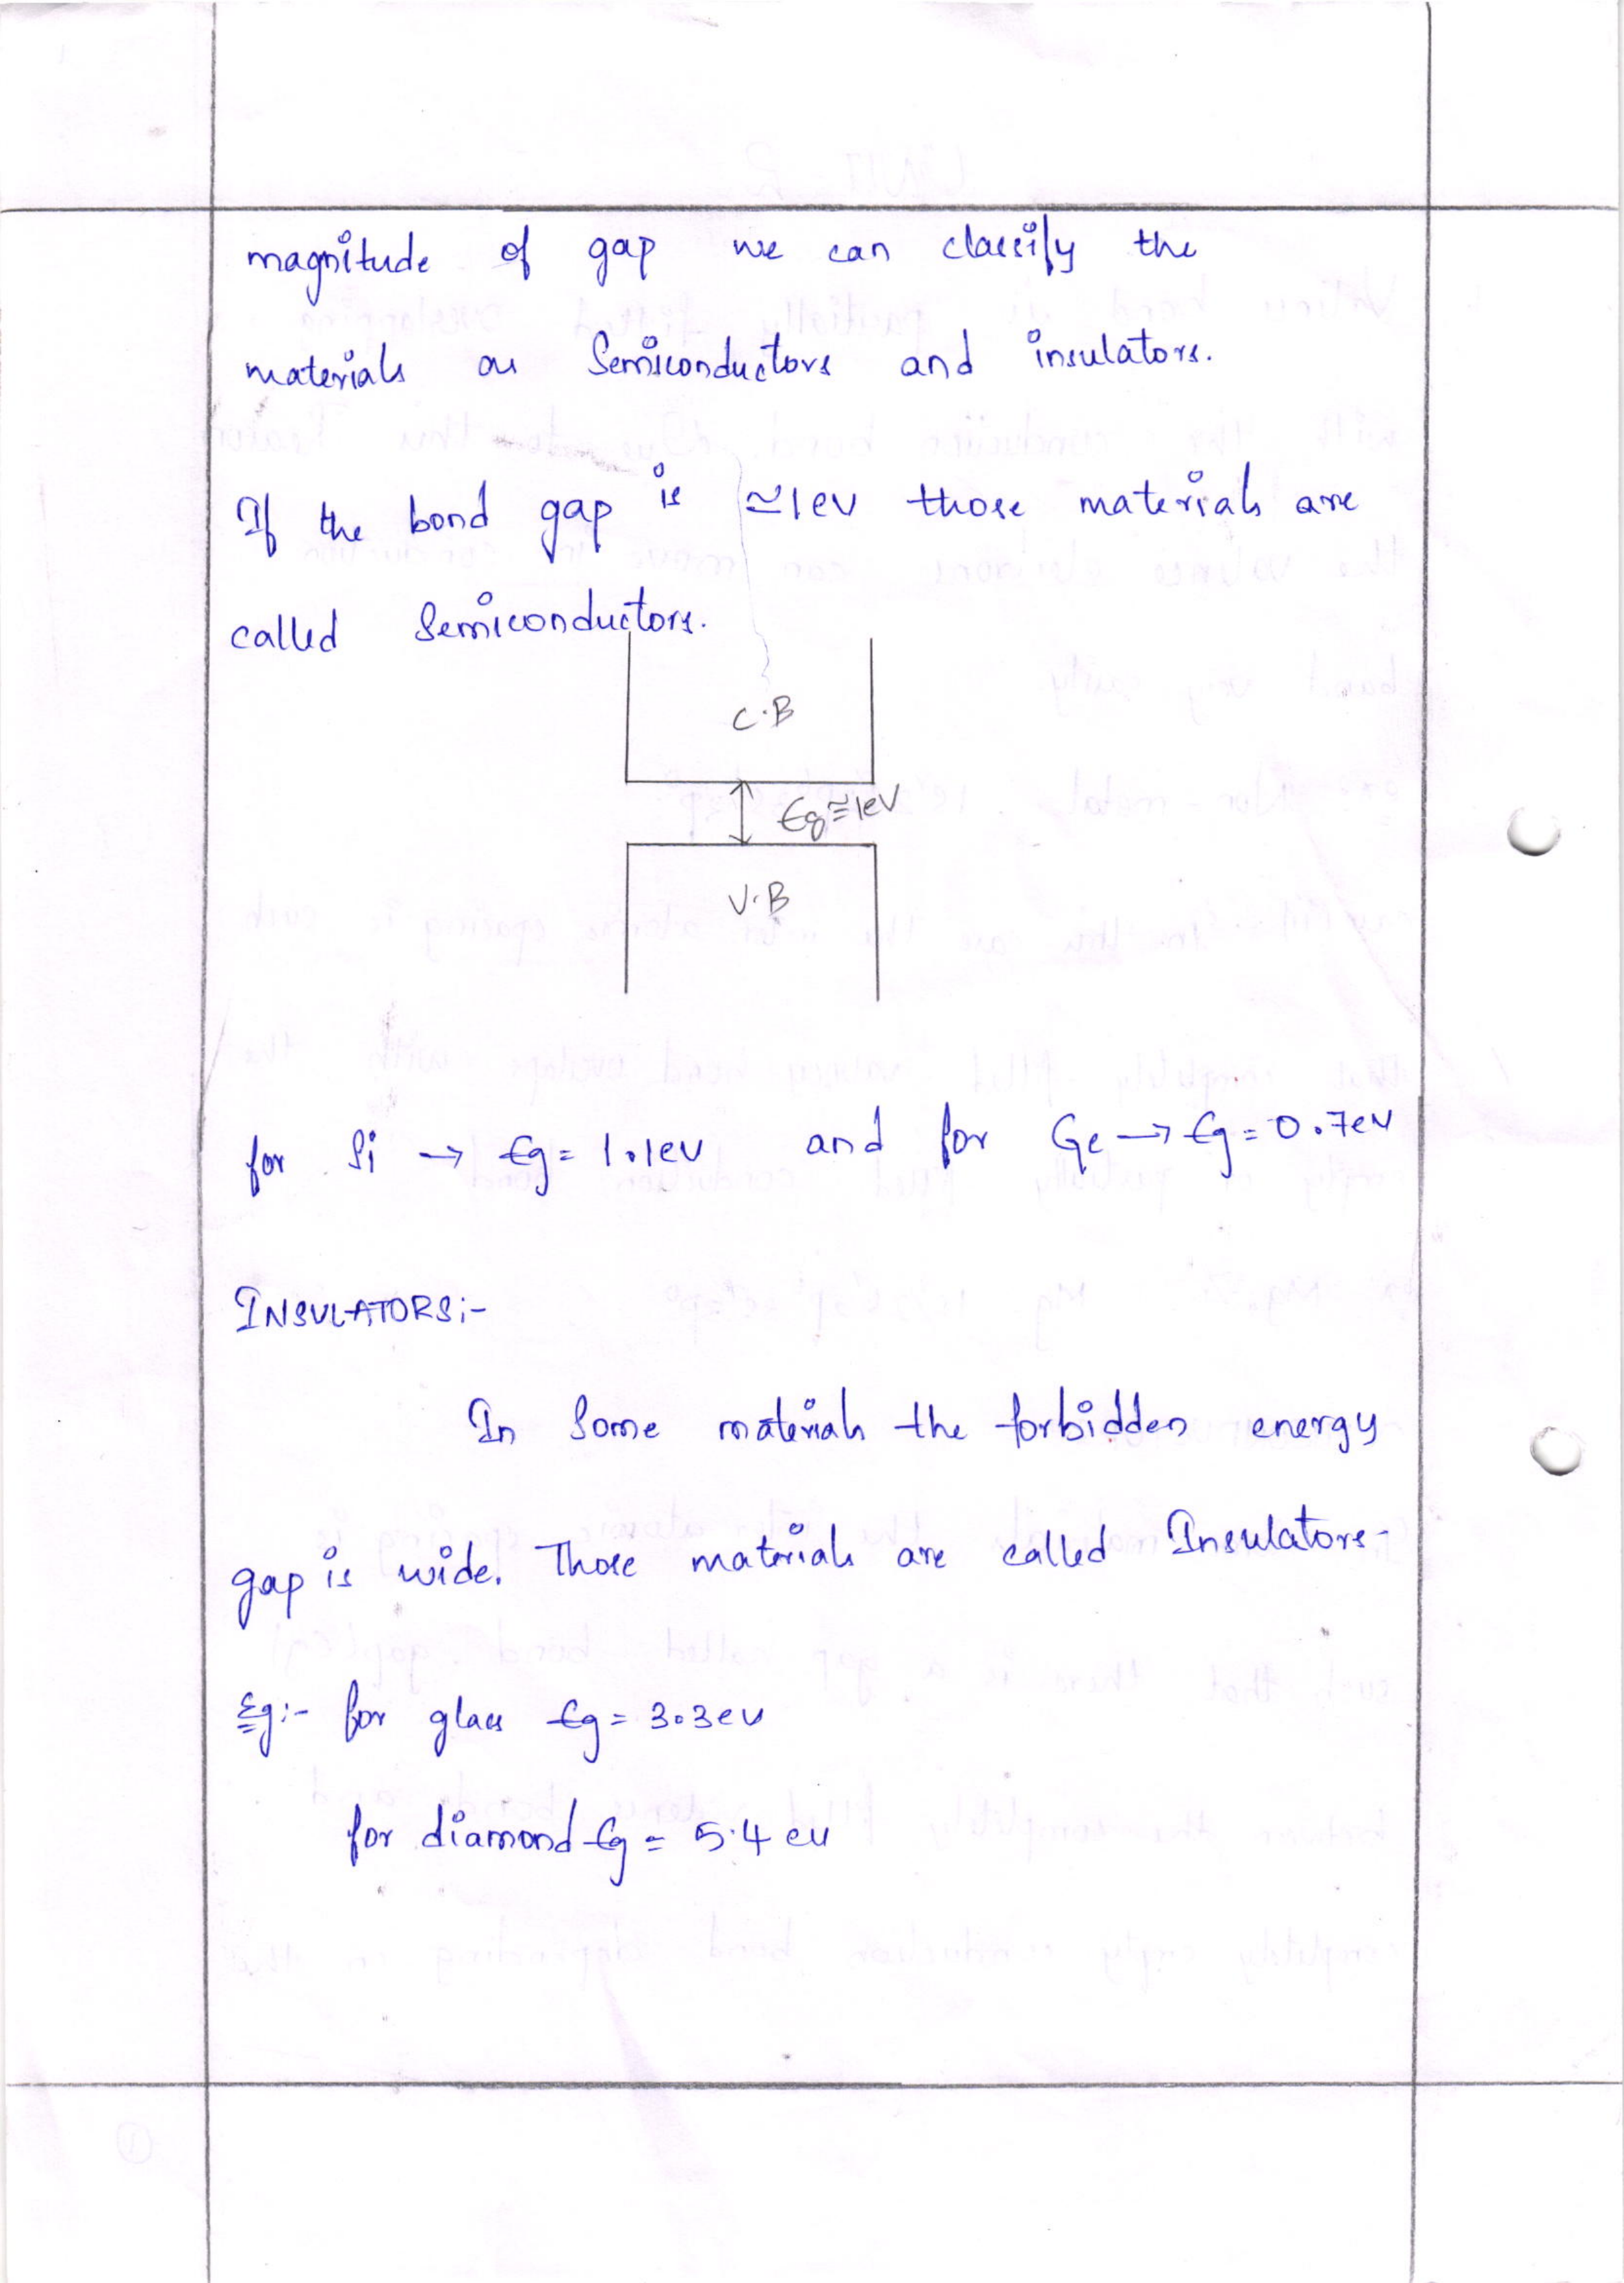 magnitude of gap we can classify the
materials as Semiconductors and insulators.
If the bond gap is ≃1ev those materials are
called Semiconductors.
C.B
Eg≅1eV
V.B
for Si → Eg = 1.1ev and for Ge → Eg = 0.7ev
INSULATORS:-
In Some materials the forbidden energy
gap is wide. Those materials are called Insulators-
Eg:- for glass Eg = 3.3ev
for diamond Eg = 5.4 ev